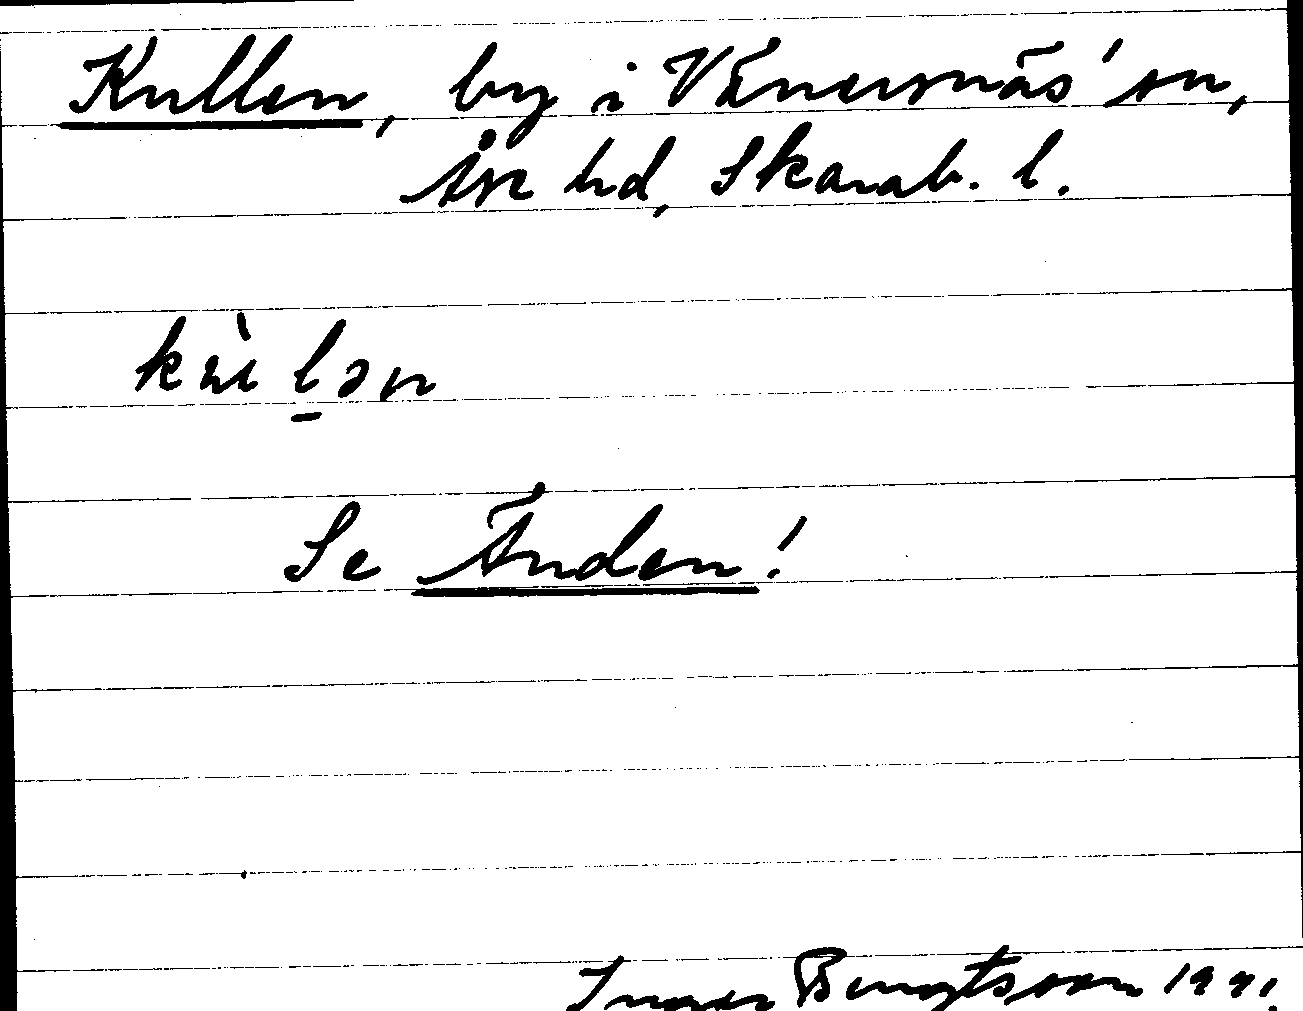 Kullen, by i Vänersnäs' sn,
Åse hd, Skarab. l.
kùl̠ən
Se Änden!
Inger Bengtsson 1991